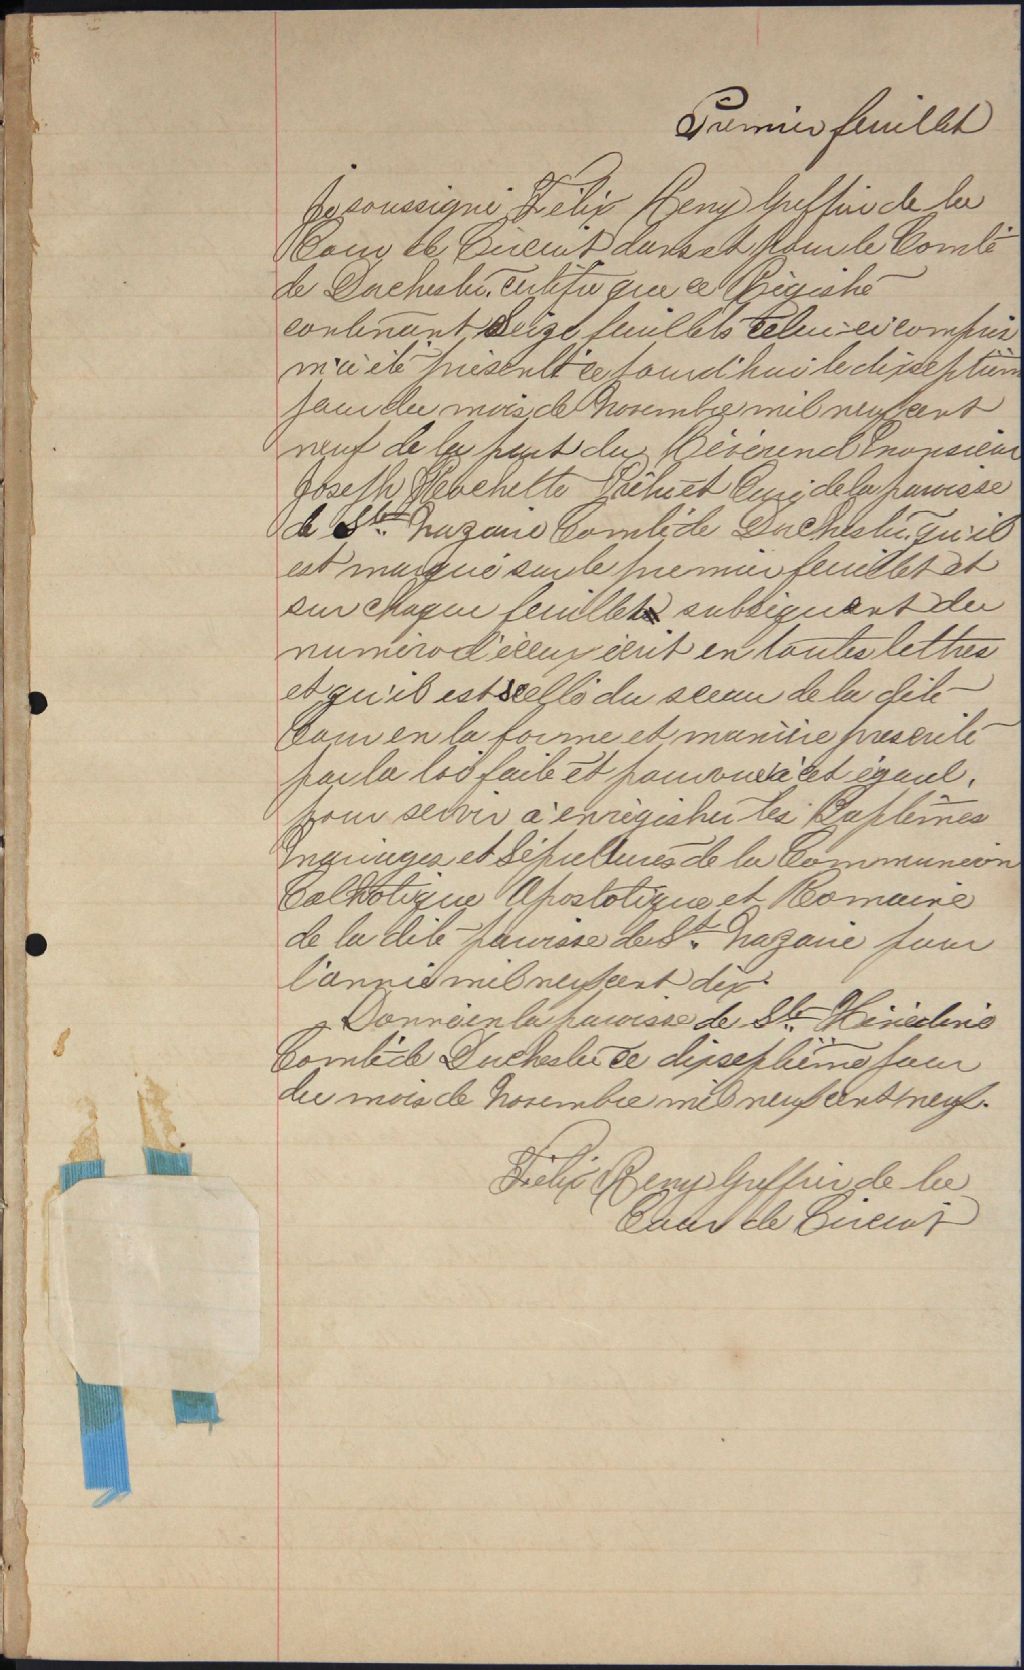 Premier feuillet
Je soussigné Félix Remy Greffier de la
Cour de Circuit dans et pour le Comté
de Dorchester. certifie que ce Régistre
contenant Seize feuillets celui-ci compris
m'a été présenté ce jourd'hui le dixseptième
jour du mois de Novembre mil neuf cent
neuf de la part du Révérend Monsieur
Joseph Frechette Prêtre et Curé de la paroisse
de St. Nazaire Comté de Dorchester. qu'il
est marqué sur le premier feuillet et
sur chaque feuillet subséquent du
numéro d'iceux écrit en toutes lettres
et qu'il est scellé du sceau de la dite
Cour en la forme et manière prescrite
par la loi faite et pourvue à cet égard.
pour servir à enrégistrer les Baptêmes
Mariages et Sépultures de la Communion
Catholique Apostolique et Romaine
de la dite paroisse de St. Nazaire pour
l'année mil neuf cent dix.
Donné en la paroisse de Ste. Hénédine
Comté de Dorchester ce dixseptième jour
du mois de Novembre mil neuf cent neuf.
Félix Remy Greffier de la
Cour de Circuit